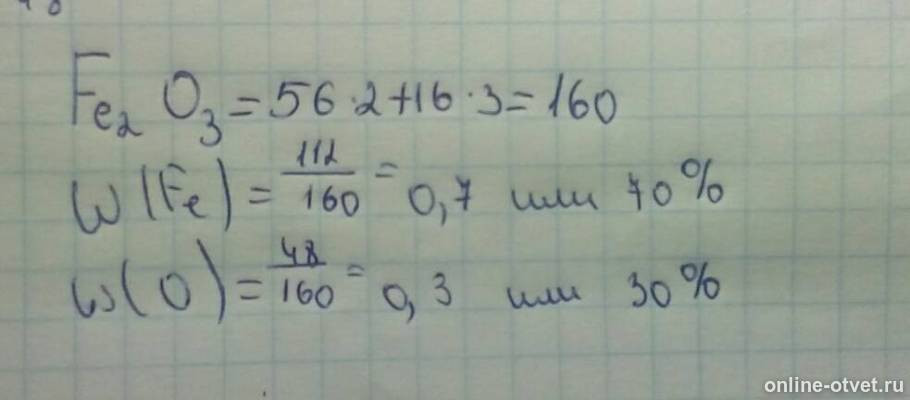 Fe₂O₃ = 56·2+16·3 = 160
W(Fe) = 112/160 = 0,7 или 70%
W(O) = 48/160 = 0,3 или 30%
online-otvet.ru